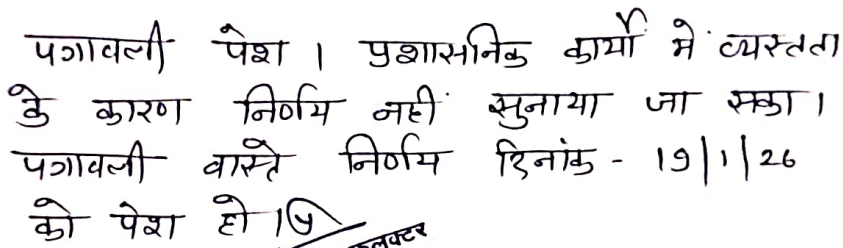 पत्रावली पेश । प्रशासनिक कार्यों में व्यस्तता
के कारण निर्णय नहीं सुनाया जा सका ।
पत्रावली वास्ते निर्णय दिनांक - 19/1/26
को पेश हो ।